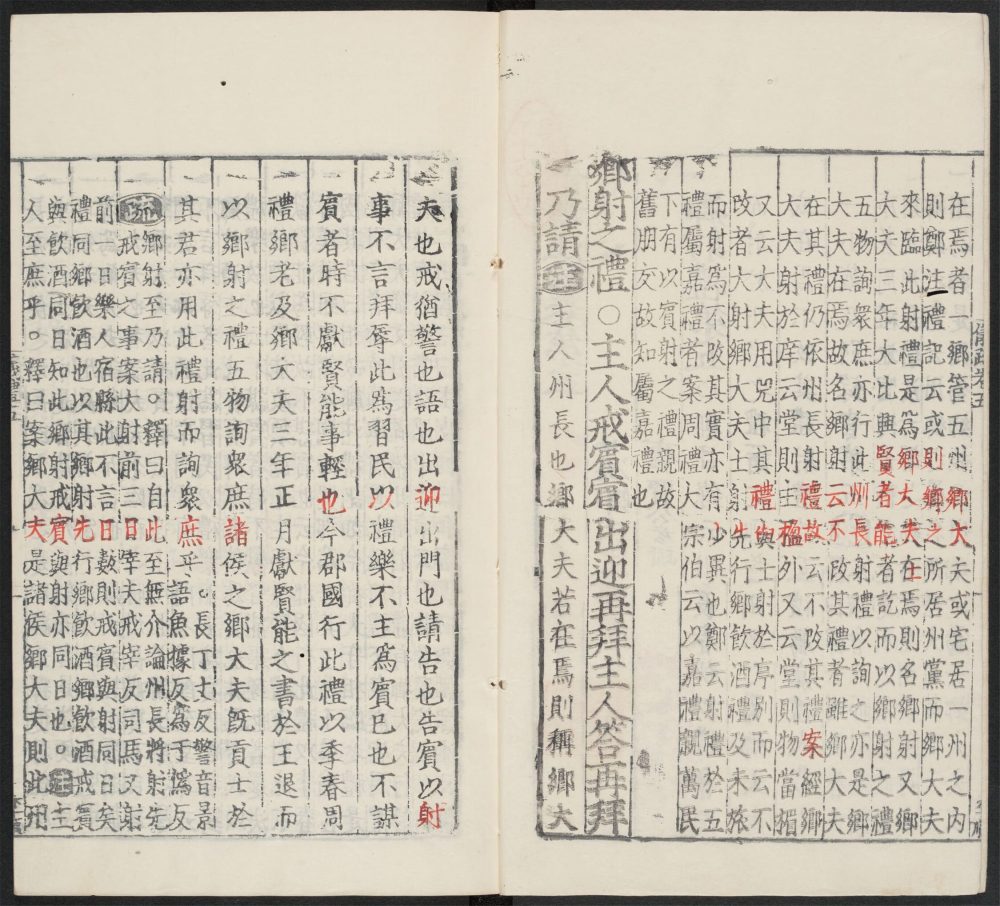 在焉者一鄉管五州鄉大夫或宅居一州之內
則鄭注禮記云或則鄉之所居州黨而鄉大夫
來臨此射禮是為鄉大夫在焉則名鄉射又鄉
大夫三年大比興賢者能者訖而以鄉射之禮
五物詢眾庶亦行此州長射禮以詢之亦是鄉
大夫在焉故名鄉射云不改其禮者雖鄉大夫
在其禮仍依州長射禮故云不改其禮案經鄉
大夫射於庠云堂則主楹外又云堂則物當楣
又云大夫用兕中其禮也與士射於亭別而云不
改者大射鄉大夫士射先行鄉飲酒禮及未旅
而射為不改其實亦有少異也鄭云射禮於五
禮屬嘉禮者案周禮大宗伯云以嘉禮親萬民
下有以賓射之禮親故
舊朋友故知屬嘉禮也
鄉射之禮○主人戒賓賓出迎再拜主人荅再拜
乃請注主人州長也鄉大夫若在焉則稱鄉大
儀疏卷五
夫也戒猶警也語也出迎出門也請告也告賓以射
事不言拜辱此為習民以禮樂不主為賓已也不謀
賓者時不獻賢能事輕也今郡國行此禮以季春周
禮鄉老及鄉大夫三年正月獻賢能之書於王退而
以鄉射之禮五物詢眾庶諸侯之鄉大夫既貢士於
其君亦用此禮射而詢眾庶乎語魚據反為于偽反
長丁丈反警音景
疏鄉射至乃請○釋曰自此至無介論州長將射先
戒賓之事案大射前三日宰夫戒宰及司馬又射
前一日樂人宿縣此不言日數則戒賓與射同日矣
禮同鄉飲酒也以其鄉射先行鄉飲酒鄉飲酒戒賓
與飲酒同日知此鄉射戒賓與射亦同日也○注主
人至庶乎○釋曰案鄉大夫是諸侯鄉大夫則此州